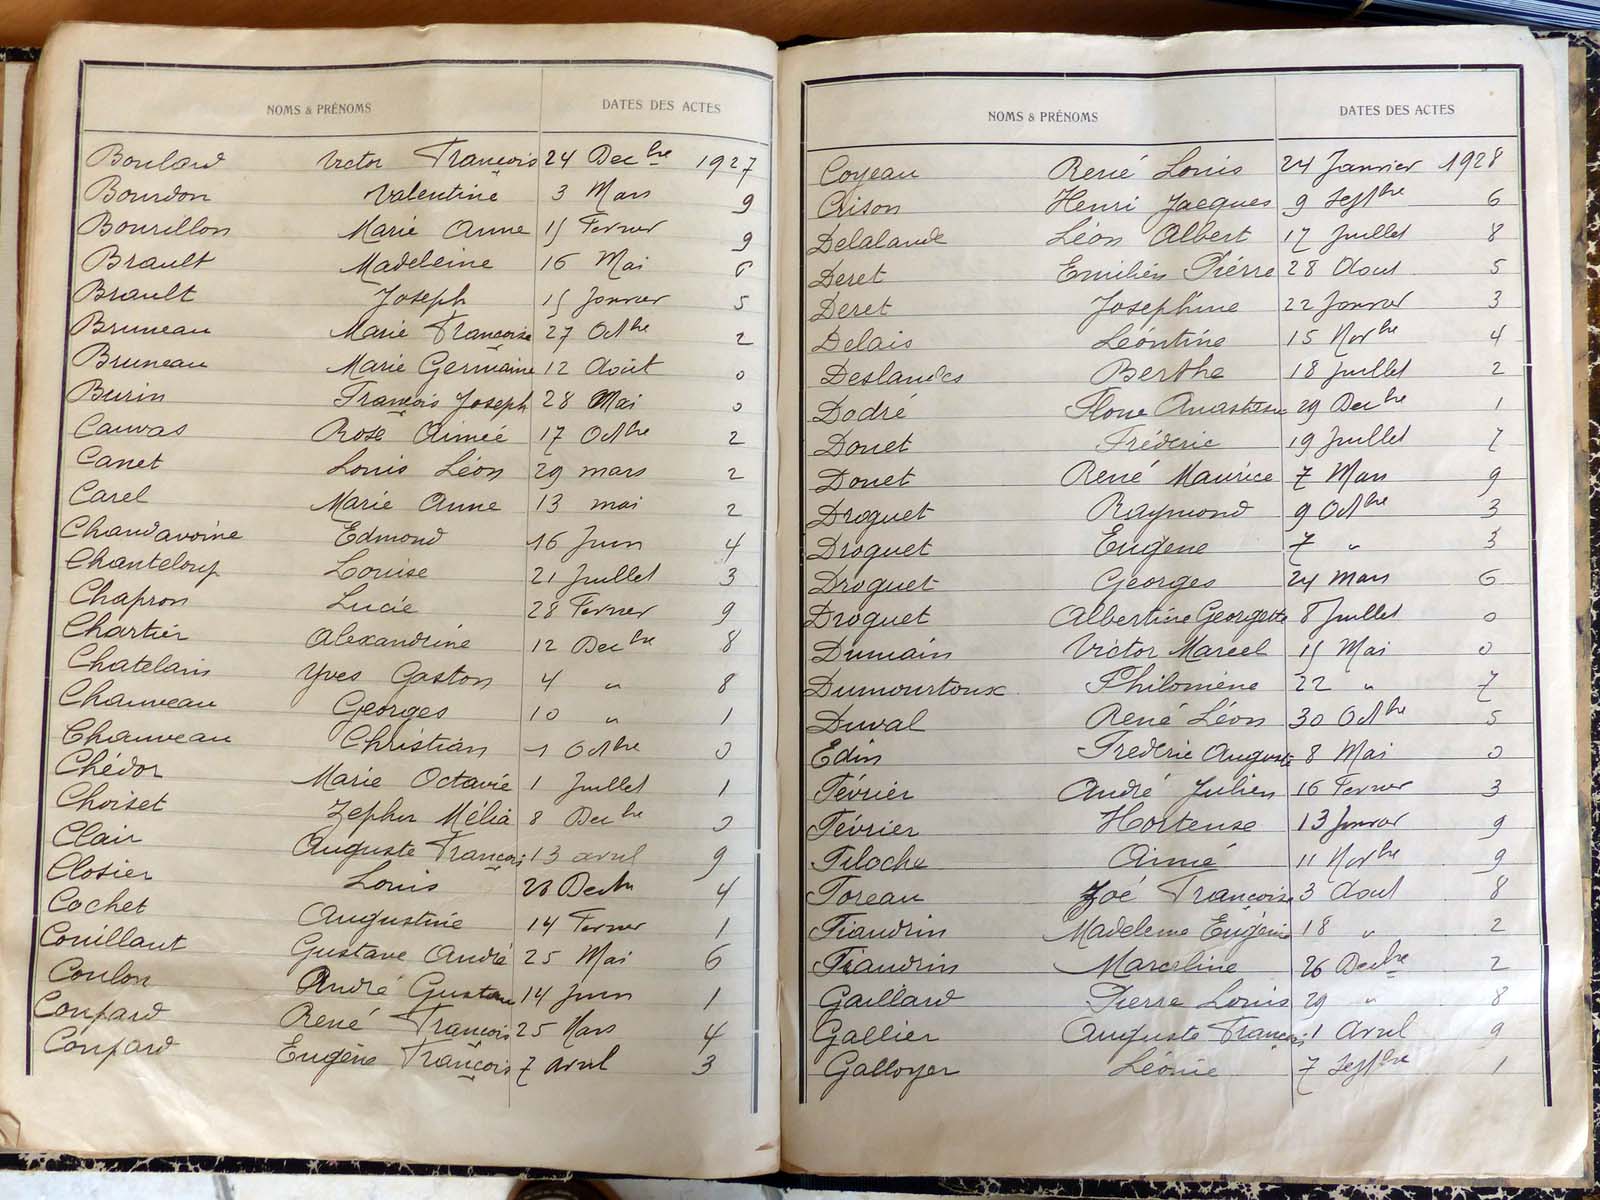 NOMS & PRÉNOMS DATES DES ACTES
Boulard Victor François 24 Decbre 1927
Bourdon Valentine 3 Mars 9
Bourillon Marie Anne 15 Fevrier 9
Brault Madeleine 16 Mai 6
Brault Joseph 15 Janvier 5
Bruneau Marie Françoise 27 Octbre 2
Bruneau Marie Germaine 12 Août 0
Burin François Joseph 28 Mai 0
Cauvas Rose Aimée 17 Octbre 2
Canet Louis Léon 29 mars 2
Carel Marie Anne 13 mai 2
Chaudavoine Edmond 16 Juin 4
Chanteloup Louise 21 Juillet 3
Chapron Lucie 28 Fevrier 9
Chartier Alexandrine 12 Decbre 8
Chatelain Yves Gaston 4 " 8
Chauveau Georges 10 " 1
Chauveau Christian 1 Octbre 0
Chédor Marie Octavie 1 Juillet 1
Choiset Zephir Mélia 8 Decbre 0
Clair Auguste François 13 avril 9
Closier Louis 28 Decbre 4
Cochet Augustine 14 Fevrier 1
Couillaut Gustave André 25 Mai 6
Coulon André Gustave 14 Juin 1
Coupard René François 25 Mars 4
Coupard Eugène François 7 avril 3
NOMS & PRÉNOMS DATES DES ACTES
Coyeau René Louis 24 Janvier 1928
Crison Henri Jacques 9 Septbre 6
Delalande Léon Albert 17 Juillet 8
Deret Emilien Pierre 28 Aout 5
Deret Joséphine 22 Janvier 3
Delais Léontine 15 Novbre 4
Deslandes Berthe 18 Juillet 2
Dodré Flore Anastasie 29 Decbre 1
Douet Fréderic 19 Juillet 7
Douet René Maurice 7 Mars 9
Droguet Raymond 9 Octbre 3
Droguet Eugène 7 " 3
Droguet Georges 24 Mars 6
Droguet Albertine Georgette 8 Juillet 0
Dumain Victor Marcel 15 Mai 0
Dumourtoux Philomène 22 " 7
Duval René Léon 30 Octbre 5
Edin Frederic Auguste 8 Mai 0
Février André Julien 16 Fevrier 3
Février Hortense 13 Janvier 9
Filoche Aimé 11 Novbre 9
Foreau Zoé Françoise 3 Aout 8
Fiaudrin Madeleine Eugénie 18 " 2
Fiaudrin Marceline 26 Decbre 2
Gaillard Pierre Louis 29 " 8
Gallier Auguste François 1 Avril 9
Galloyer Léonie 7 Septbre 1